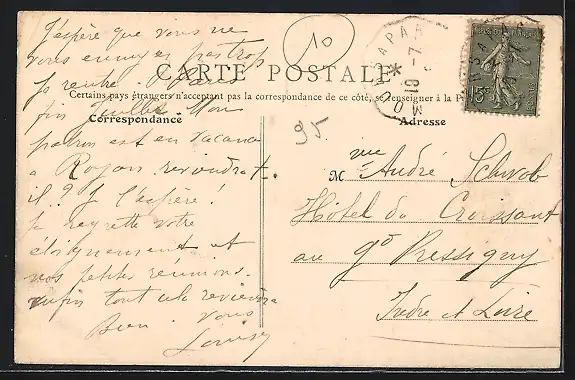 J'espère que vous ne
vous ennuyez pas trop
je rentre
fin Juillet Mon
patron est en vacances
a Royan, reviendra t.
il ? J'espère !
Je regrette votre
éloignement et
nos petites réunions.
enfin tout cela reviendra
Bien vous
Louisy
10
CARTE POSTALE
Certains pays étrangers n'acceptant pas la correspondance de ce côté, se renseigner à la P
Correspondance
Adresse
95
M me André Schwob
Hôtel du Croissant
au gd Pressigny
Indre et Loire
15c